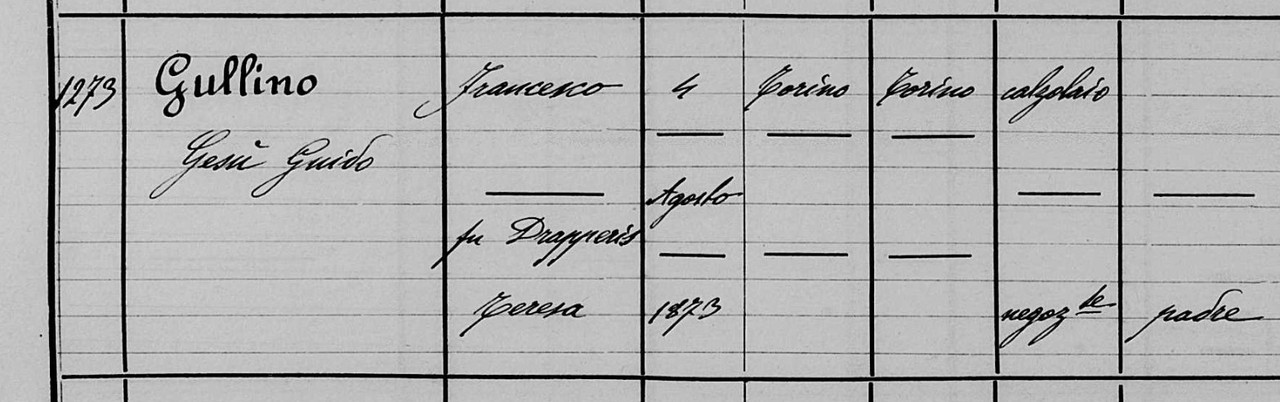 1273 Gullino Francesco 4 Torino Torino calzolaio
Gesù Guido
Agosto
fu Drapperis
Teresa 1873 negoz.te padre